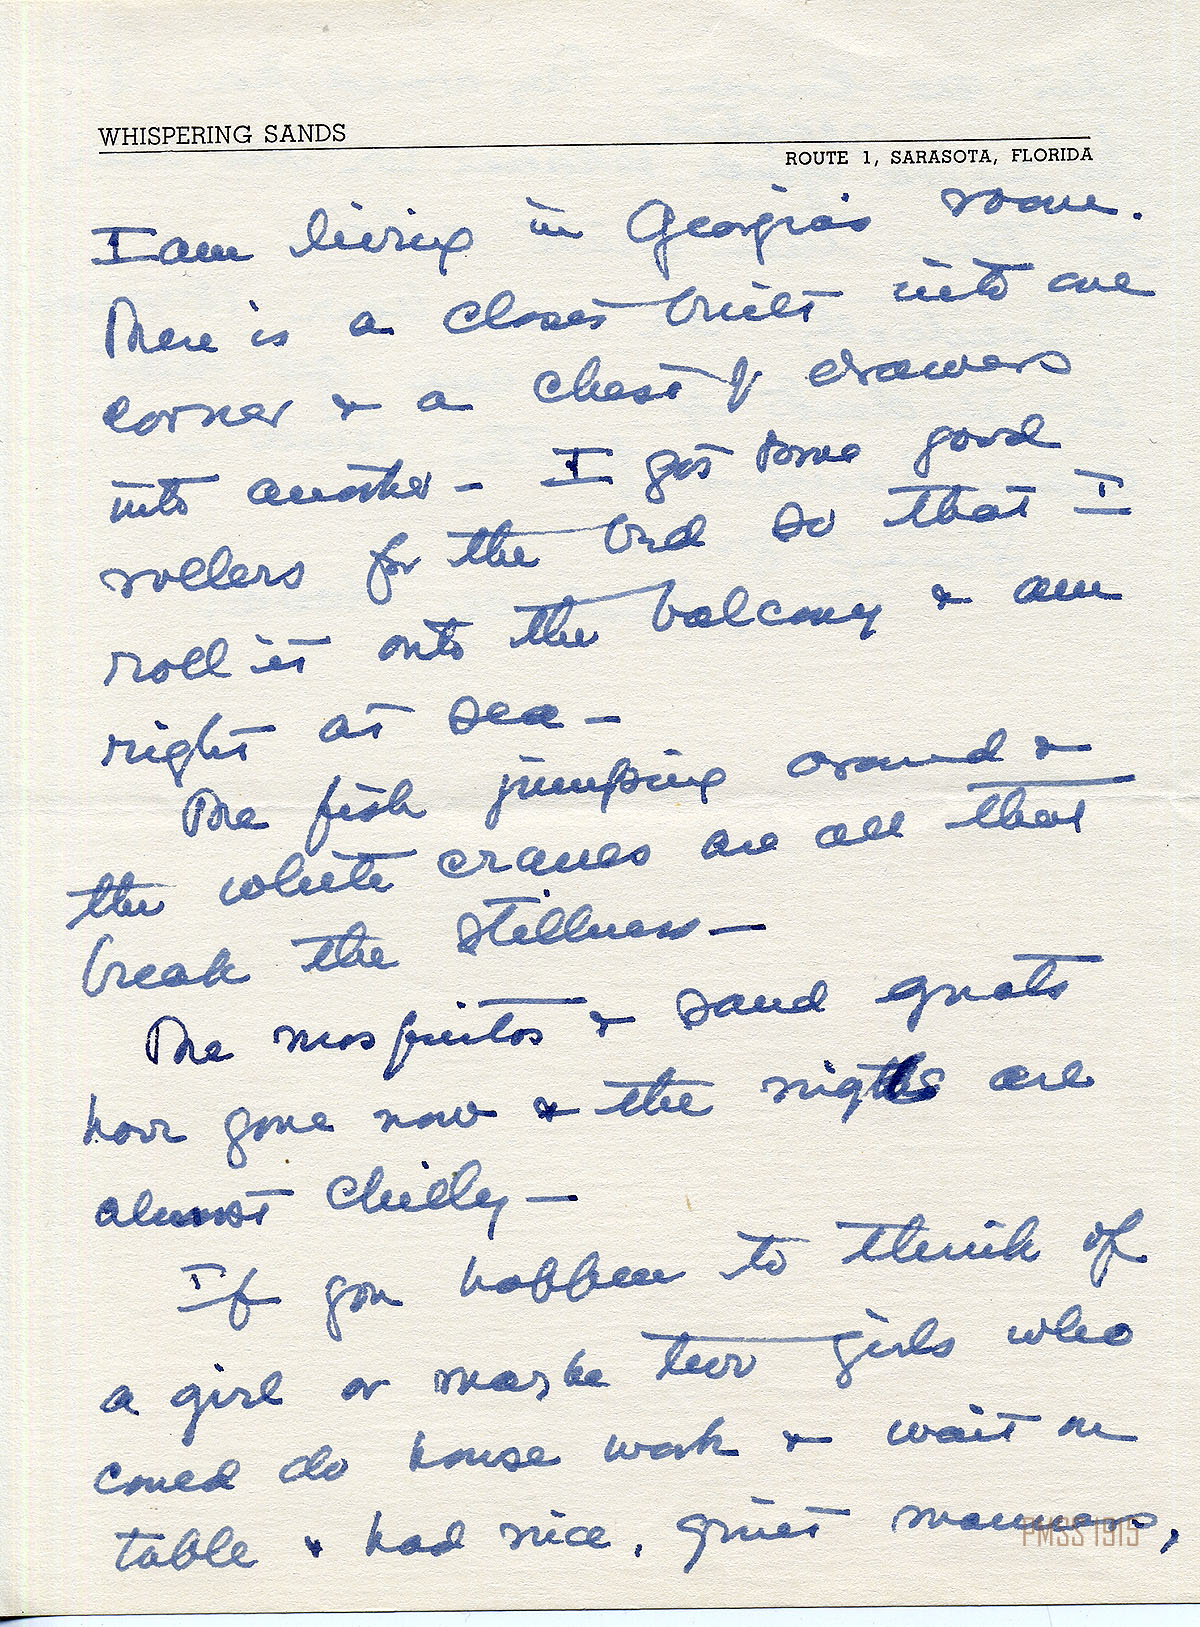 WHISPERING SANDS
ROUTE 1, SARASOTA, FLORIDA
I am living in Georgia's room.
There is a closet built into one
corner & a chest of drawers
into another - I got some good
rollers for the bed so that I
roll it onto the balcony & am
right at sea -
The fish jumping around &
the white cranes are all that
break the stillness -
The mosquitos & sand gnats
have gone now & the nights are
almost chilly -
If you happen to think of
a girl or maybe two girls who
could do house work & wait on
table & had nice, quiet manners,
PMSS 1919